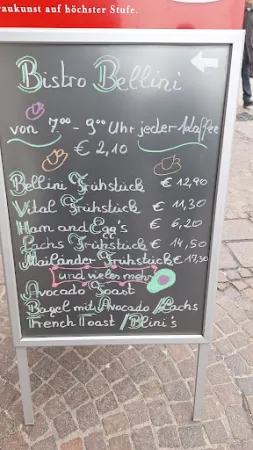 raukunst auf höchster Stufe.
Bistro Bellini
von 7⁰⁰ - 9⁰⁰ Uhr jeder Kaffee
€ 2,10
Bellini Frühstück € 12,90
Vital Frühstück € 11,30
Ham and Egg's € 6,20
Lachs Frühstück € 14,50
Mailänder Frühstück € 17,50
und vieles mehr
Avocado Toast
Bagel mit Avocado/Lachs
French Toast / Blini's